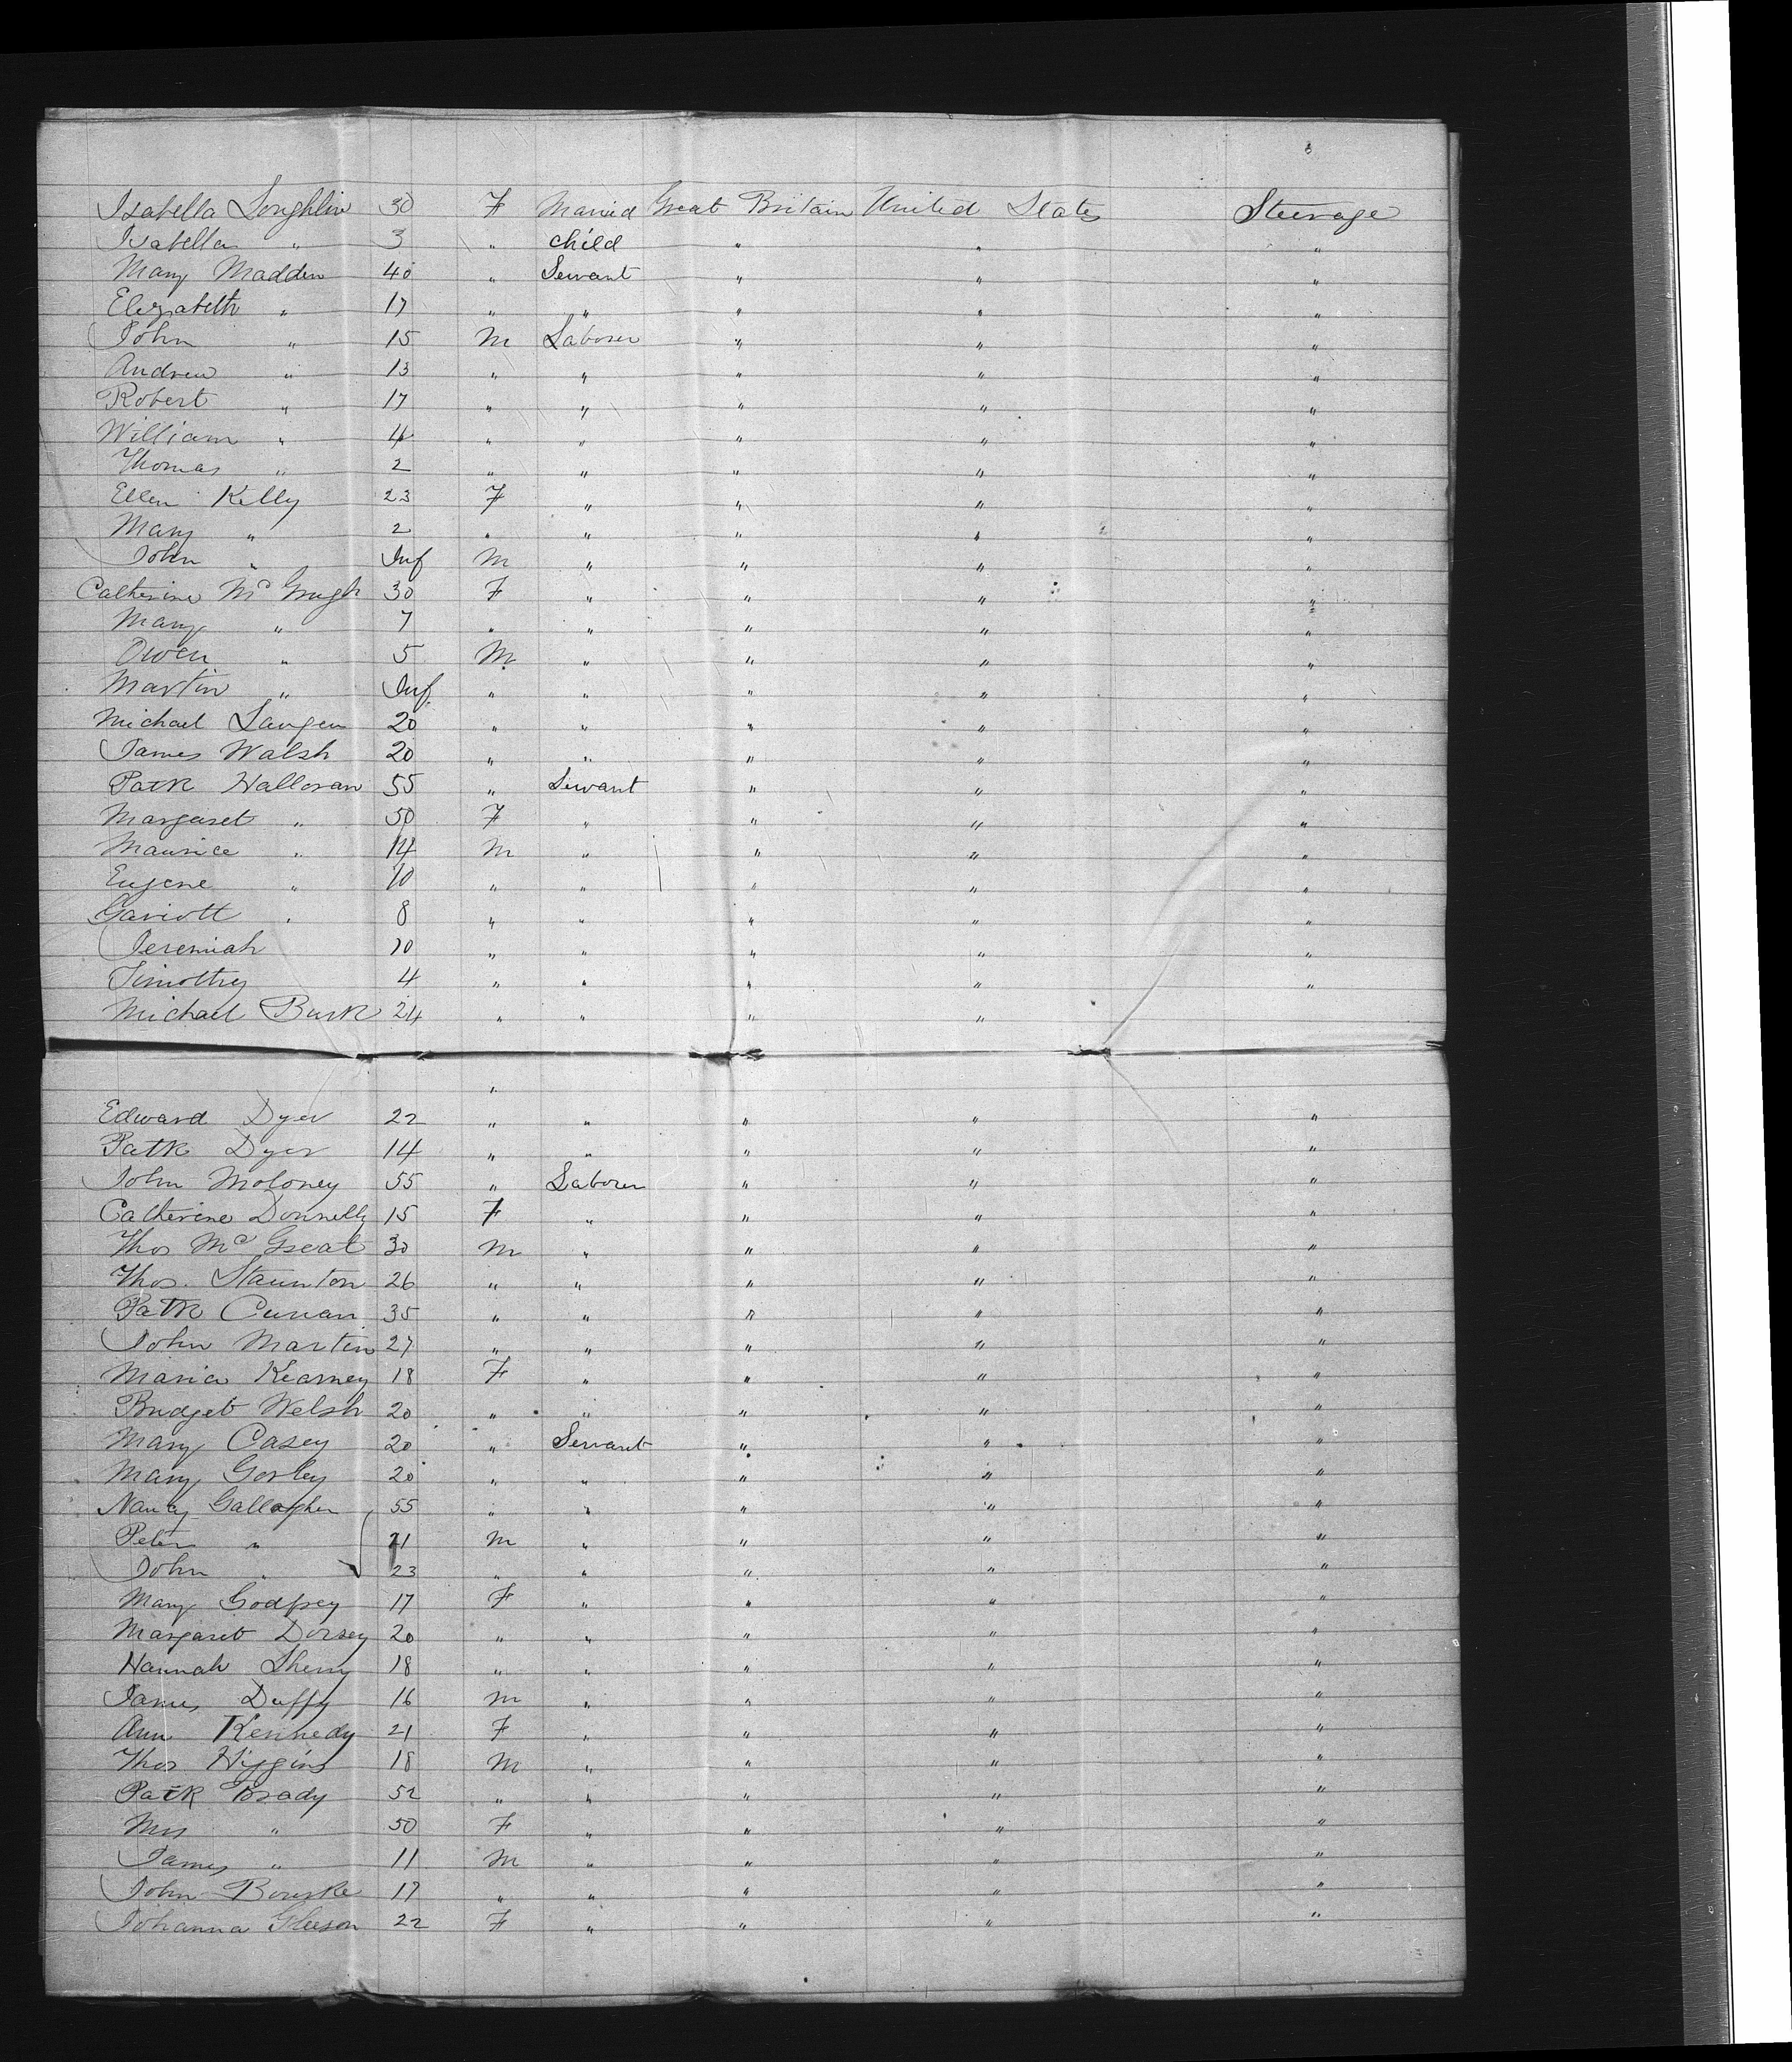 Isabella Loughlin 30 F Married Great Britain United States Steerage
Isabella " 3 " child " " "
Mary Madden 40 " Servant " " "
Elizabeth " 17 " " " " "
John " 15 M Laborer " " "
Andrew " 13 " " " " "
Robert " 17 " " " " "
William " 4 " " " " "
Thomas " 2 " " " " "
Ellen Kelly 23 F " " " "
Mary " 2 " " " " "
John " Inf M " " " "
Catherine Mc Gugh 30 F " " " "
Mary " 7 " " " " "
Owen " 5 M " " " "
Martin " Inf " " " " "
Michael Langen 20 " " " " "
James Walsh 20 " " " " "
Patk Halloran 55 " Servant " " "
Margaret " 50 F " " " "
Maurice " 14 M " " " "
Eugene " 10 " " " " "
Gariott " 8 " " " " "
Jeremiah 10 " " " " "
Timothy 4 " " " " "
Michael Burk 24 " " " "
"
Edward Dyer 22 " " " " "
Patk Dyer 14 " " " " "
John Moloney 55 " Laborer " " "
Catherine Donnelly 15 F " " " "
Thos Mc Great 30 M " " " "
Thos. Staunton 26 " " " " "
Patk Curran 35 " " " " "
John Martin 27 " " " " "
Maria Kearney 18 F " " " "
Bridget Welsh 20 " " " " "
Mary Casey 20 " Servant " " "
Mary Gorley 20 " " " " "
Nancy Gallagher 55 " " " " "
Peter " 21 M " " " "
John " 23 " " " " "
Mary Godfrey 17 F " " " "
Margaret Dorsey 20 " " " " "
Hannah Sherry 18 " " " " "
James Duffy 16 M " " " "
Ann Kennedy 21 F " " " "
Thos Higgins 18 M " " " "
Patk Brady 52 " " " " "
Mrs " 50 F " " " "
James " 11 M " " " "
John Bourke 17 " " " " "
Johanna Gleeson 22 F " " " "